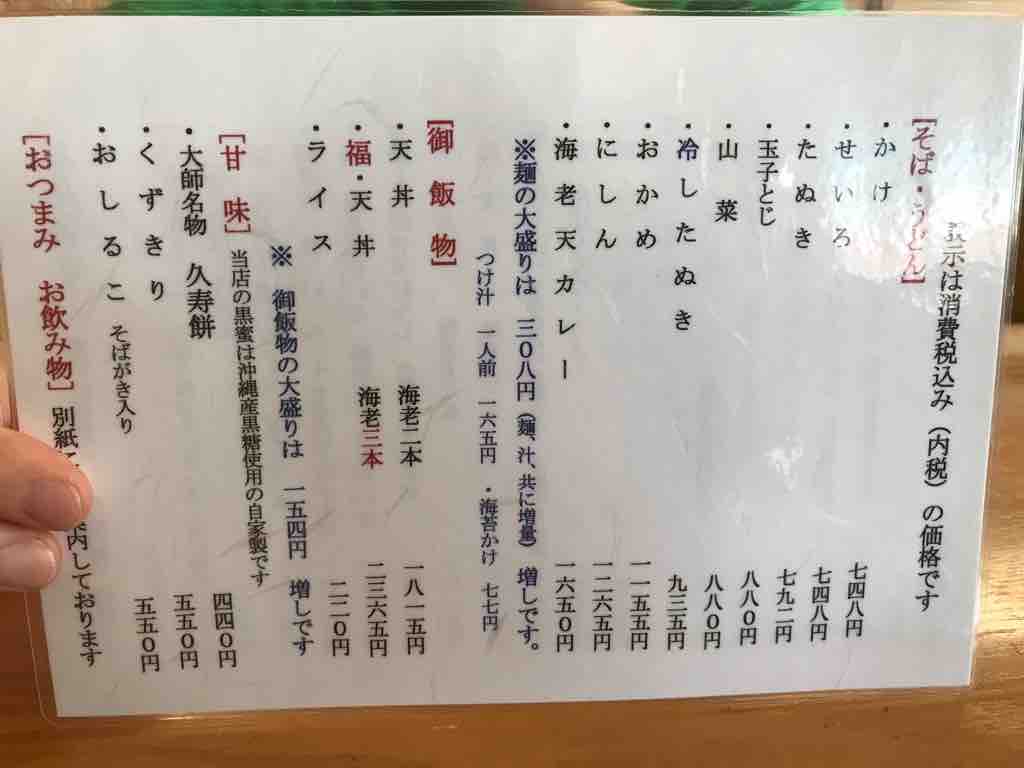 表示は消費税込み（内税）の価格です
[そば・うどん]
・かけ 七四八円
・せいろ 七四八円
・たぬき 七九二円
・玉子とじ 八八0円
・山菜 八八0円
・冷したぬき 九三五円
・おかめ 一一五五円
・にしん 一二六五円
・海老天カレー 一六五0円
※麺の大盛りは 三0八円（麺、汁、共に増量）増しです。
つけ汁 一人前 一六五円 ・海苔かけ 七七円
[御飯物]
・天丼 海老二本 一八一五円
・福・天丼 海老三本 二三六五円
・ライス 二二0円
※ 御飯物の大盛りは 一五四円 増しです
[甘味] 当店の黒蜜は沖縄産黒糖使用の自家製です
・大師名物 久寿餅 四四0円
・くずきり 五五0円
・おしるこ そばがき入り 五五0円
[おつまみ お飲み物] 別紙に 案内しております